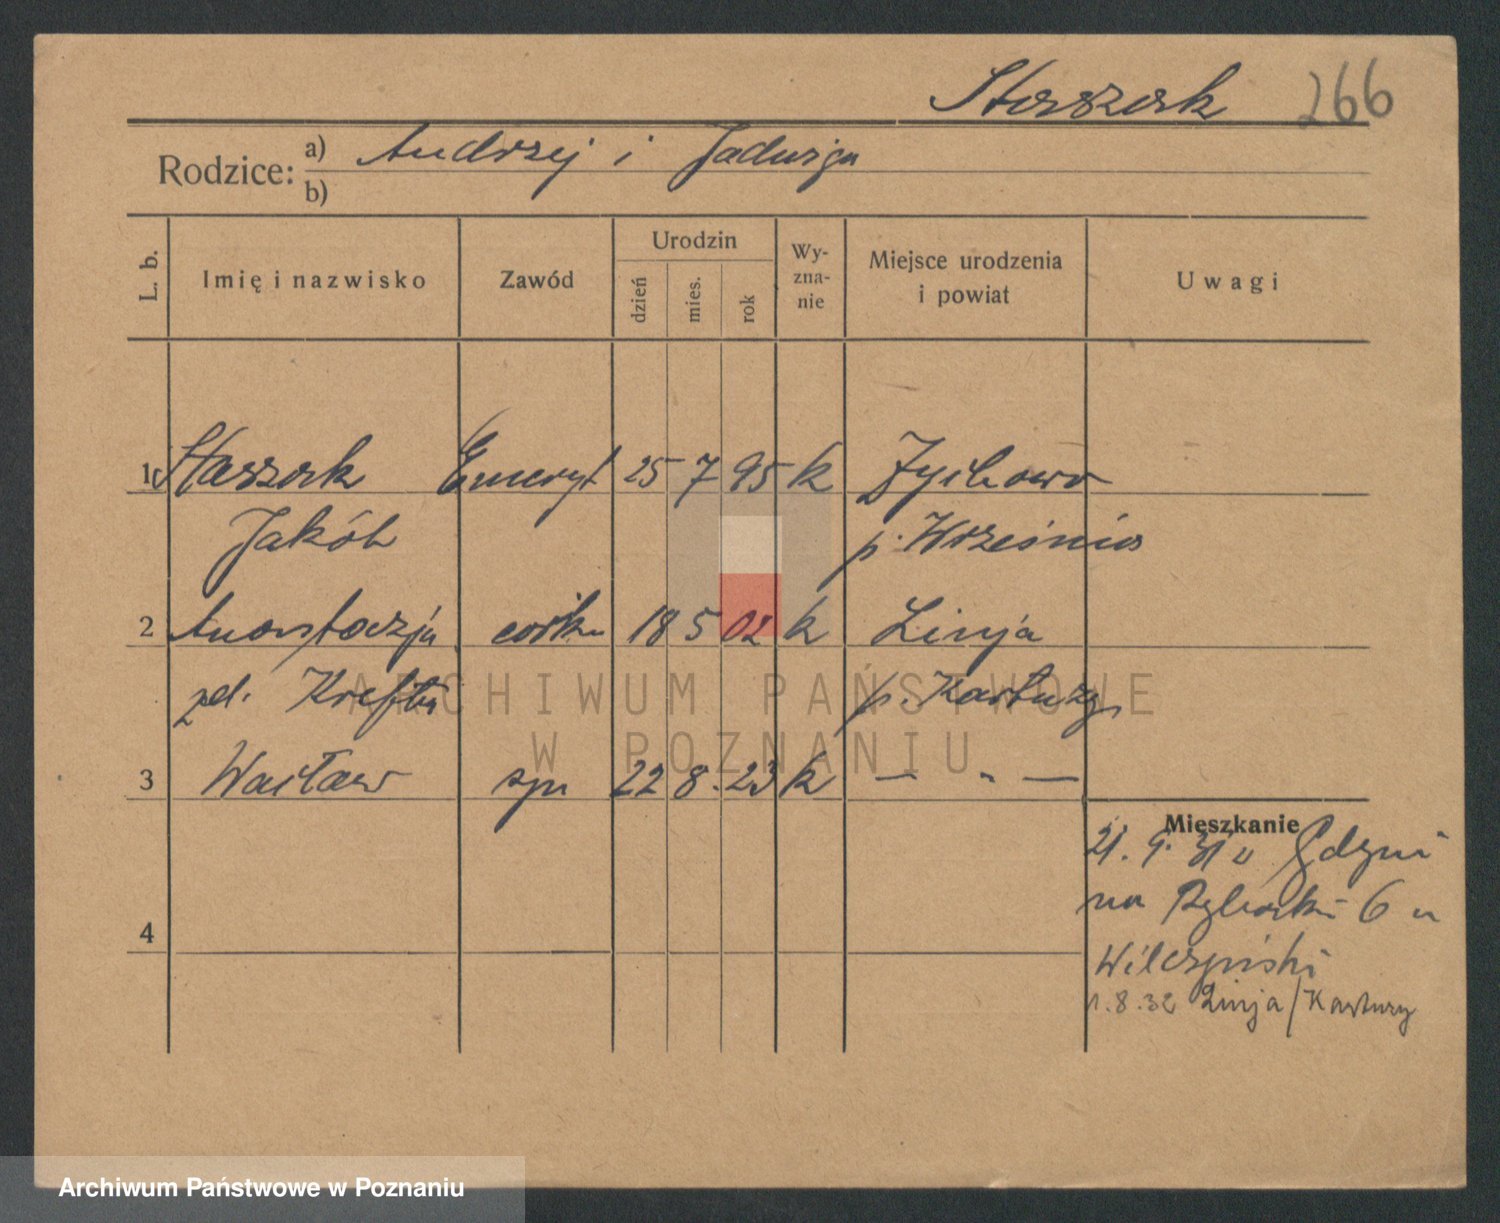 Staszak 266
Rodzice: a) Andrzej i Jadwiga
b)
L. b.
Imię i nazwisko
Zawód
Urodzin
dzień
mies.
rok
Wy-
zna-
nie
Miejsce urodzenia
i powiat
Uwagi
1 Staszak Emeryt 25 7 95 k Zychowo
Jakób p. Września
2 Anastazja córka 18 5 02 k Linja
zd. Krefta p. Kartuzy
3 Wacław syn 22 8. 23 k — " —
4
Mieszkanie
21. 9. 31 u Gdyni
6 u
Wilczyński
1.8.32 Linja/Kartuzy
ARCHIWUM PAŃSTWOWE
W POZNANIU
Archiwum Państwowe w Poznaniu